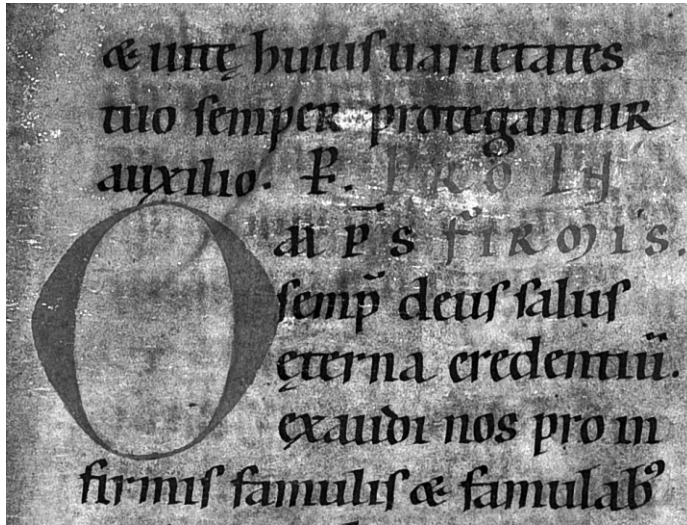 & uitę huiuſ uarietates
tuo ſemper protegantur
auxilio. P̄.
O m̄ p̄s
ſemp̄ deuſ ſaluſ
ęterna credentiū.
ęxaudi nos pro in
firmiſ famuliſ & famulabꝰ